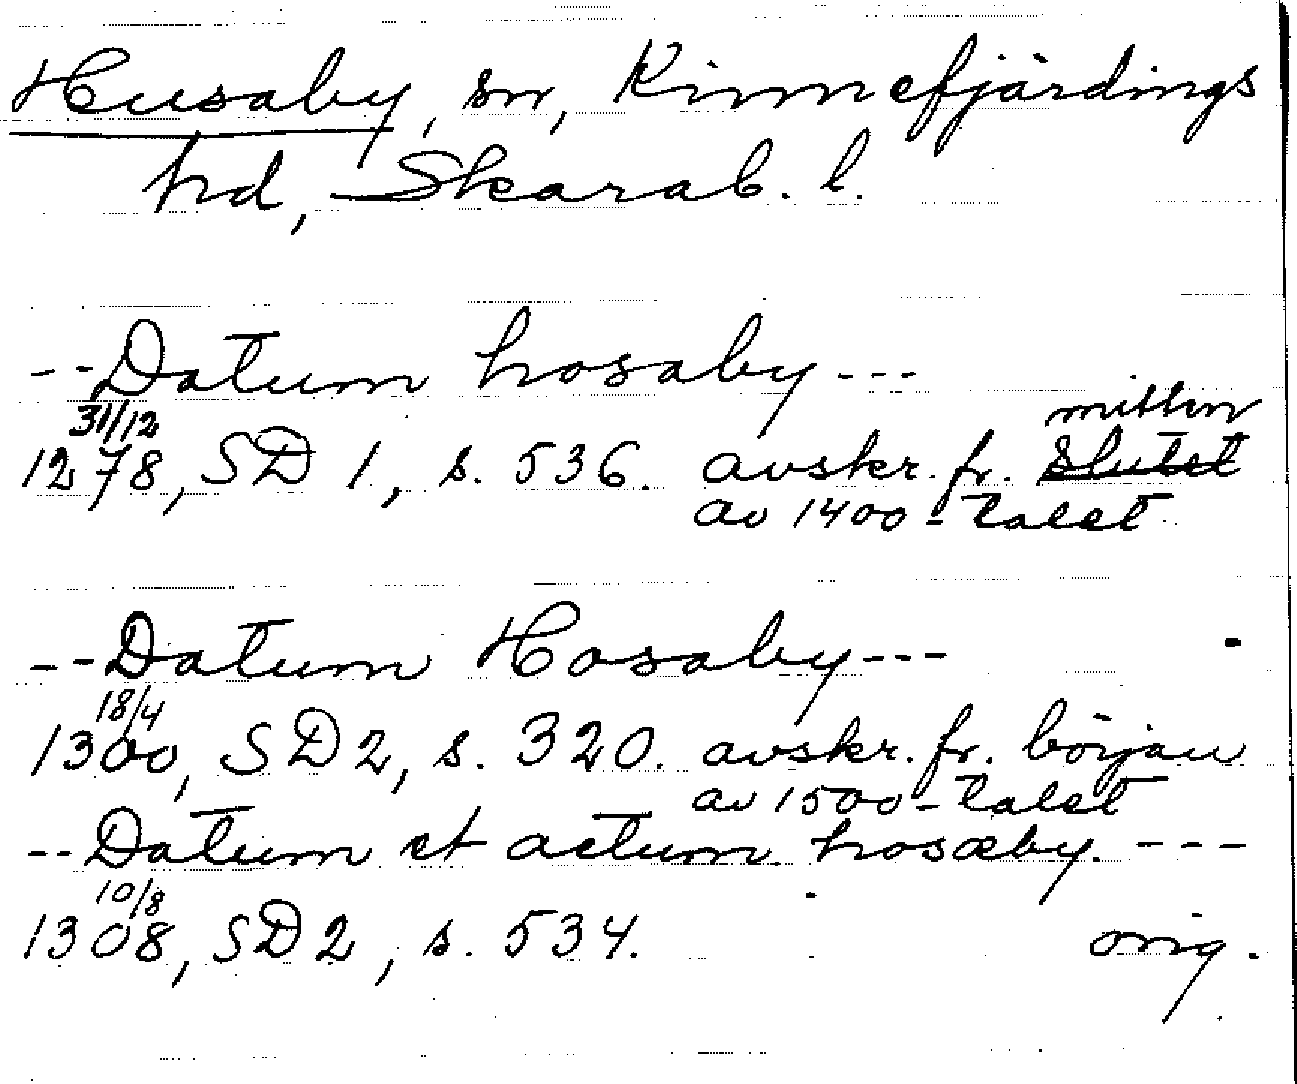 Husaby, sn, Kinnefjärdings
hd, Skarab. l.
--Datum hosaby---
31/12 mitten
1278, SD 1, s. 536. avskr. fr. slutet
av 1400-talet
--Datum Hosaby---
18/4
1300, SD 2, s. 320. avskr. fr. början
av 1500-talet
--Datum et actum hosæby. ---
10/8
1308, SD 2, s. 534. orig.